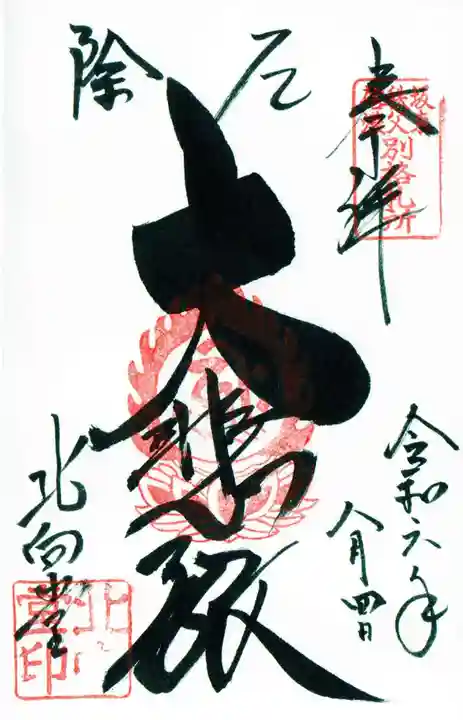 奉拝
坂東
秩父
別格札所
厄除
大悲殿
北向堂
北向堂印
令和六年
八月四日